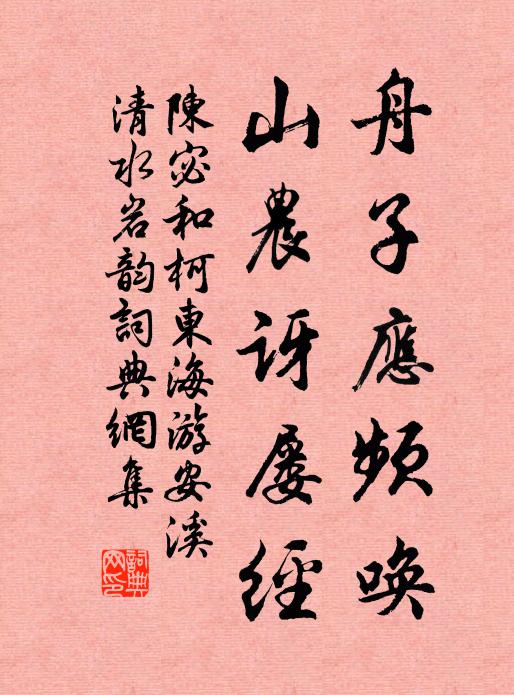 舟子應頻喚
山農訝屢經
陳宓和柯東海游安溪
清水岩韵詞典網集
詞典网印